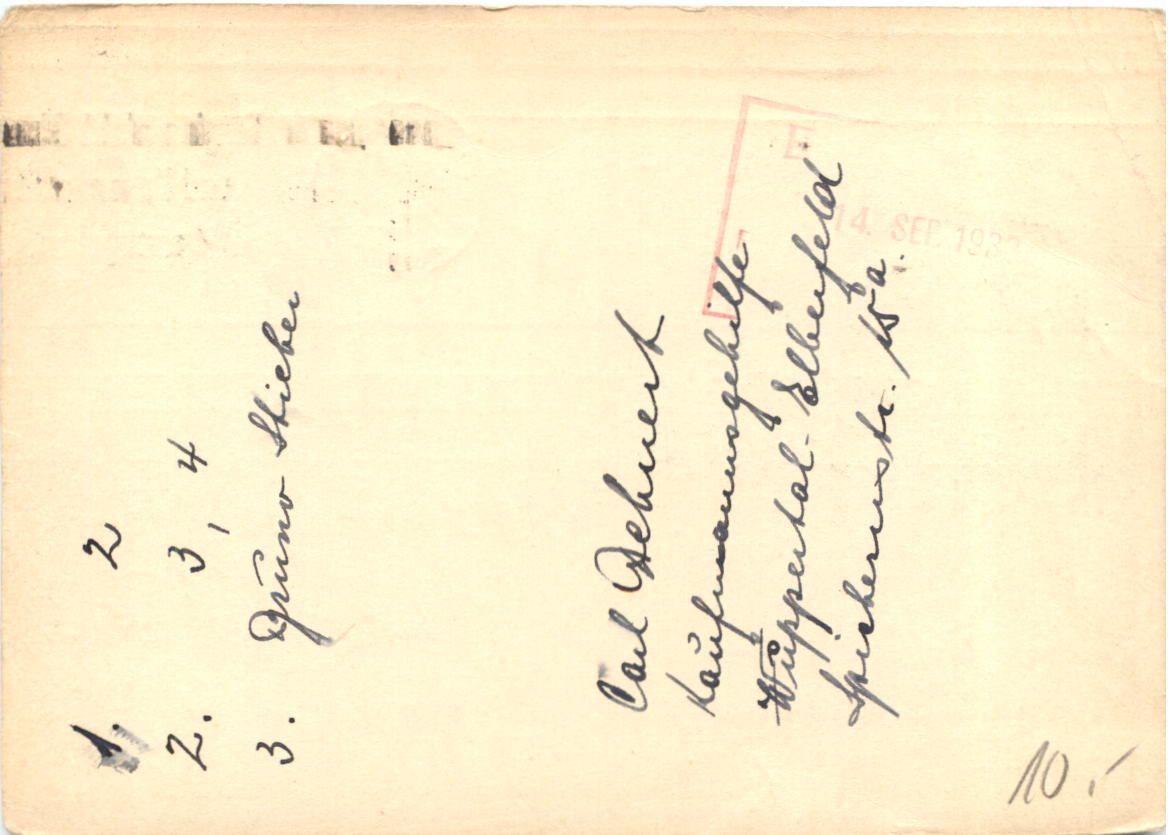 1. 2
2. 3, 4
3. Bruno Stieber
Carl Dehnert
Kaufmannsgehilfe
Wuppertal-Elberfeld
Spichernstr. 15a.
E
14. SEP. 193
10.-